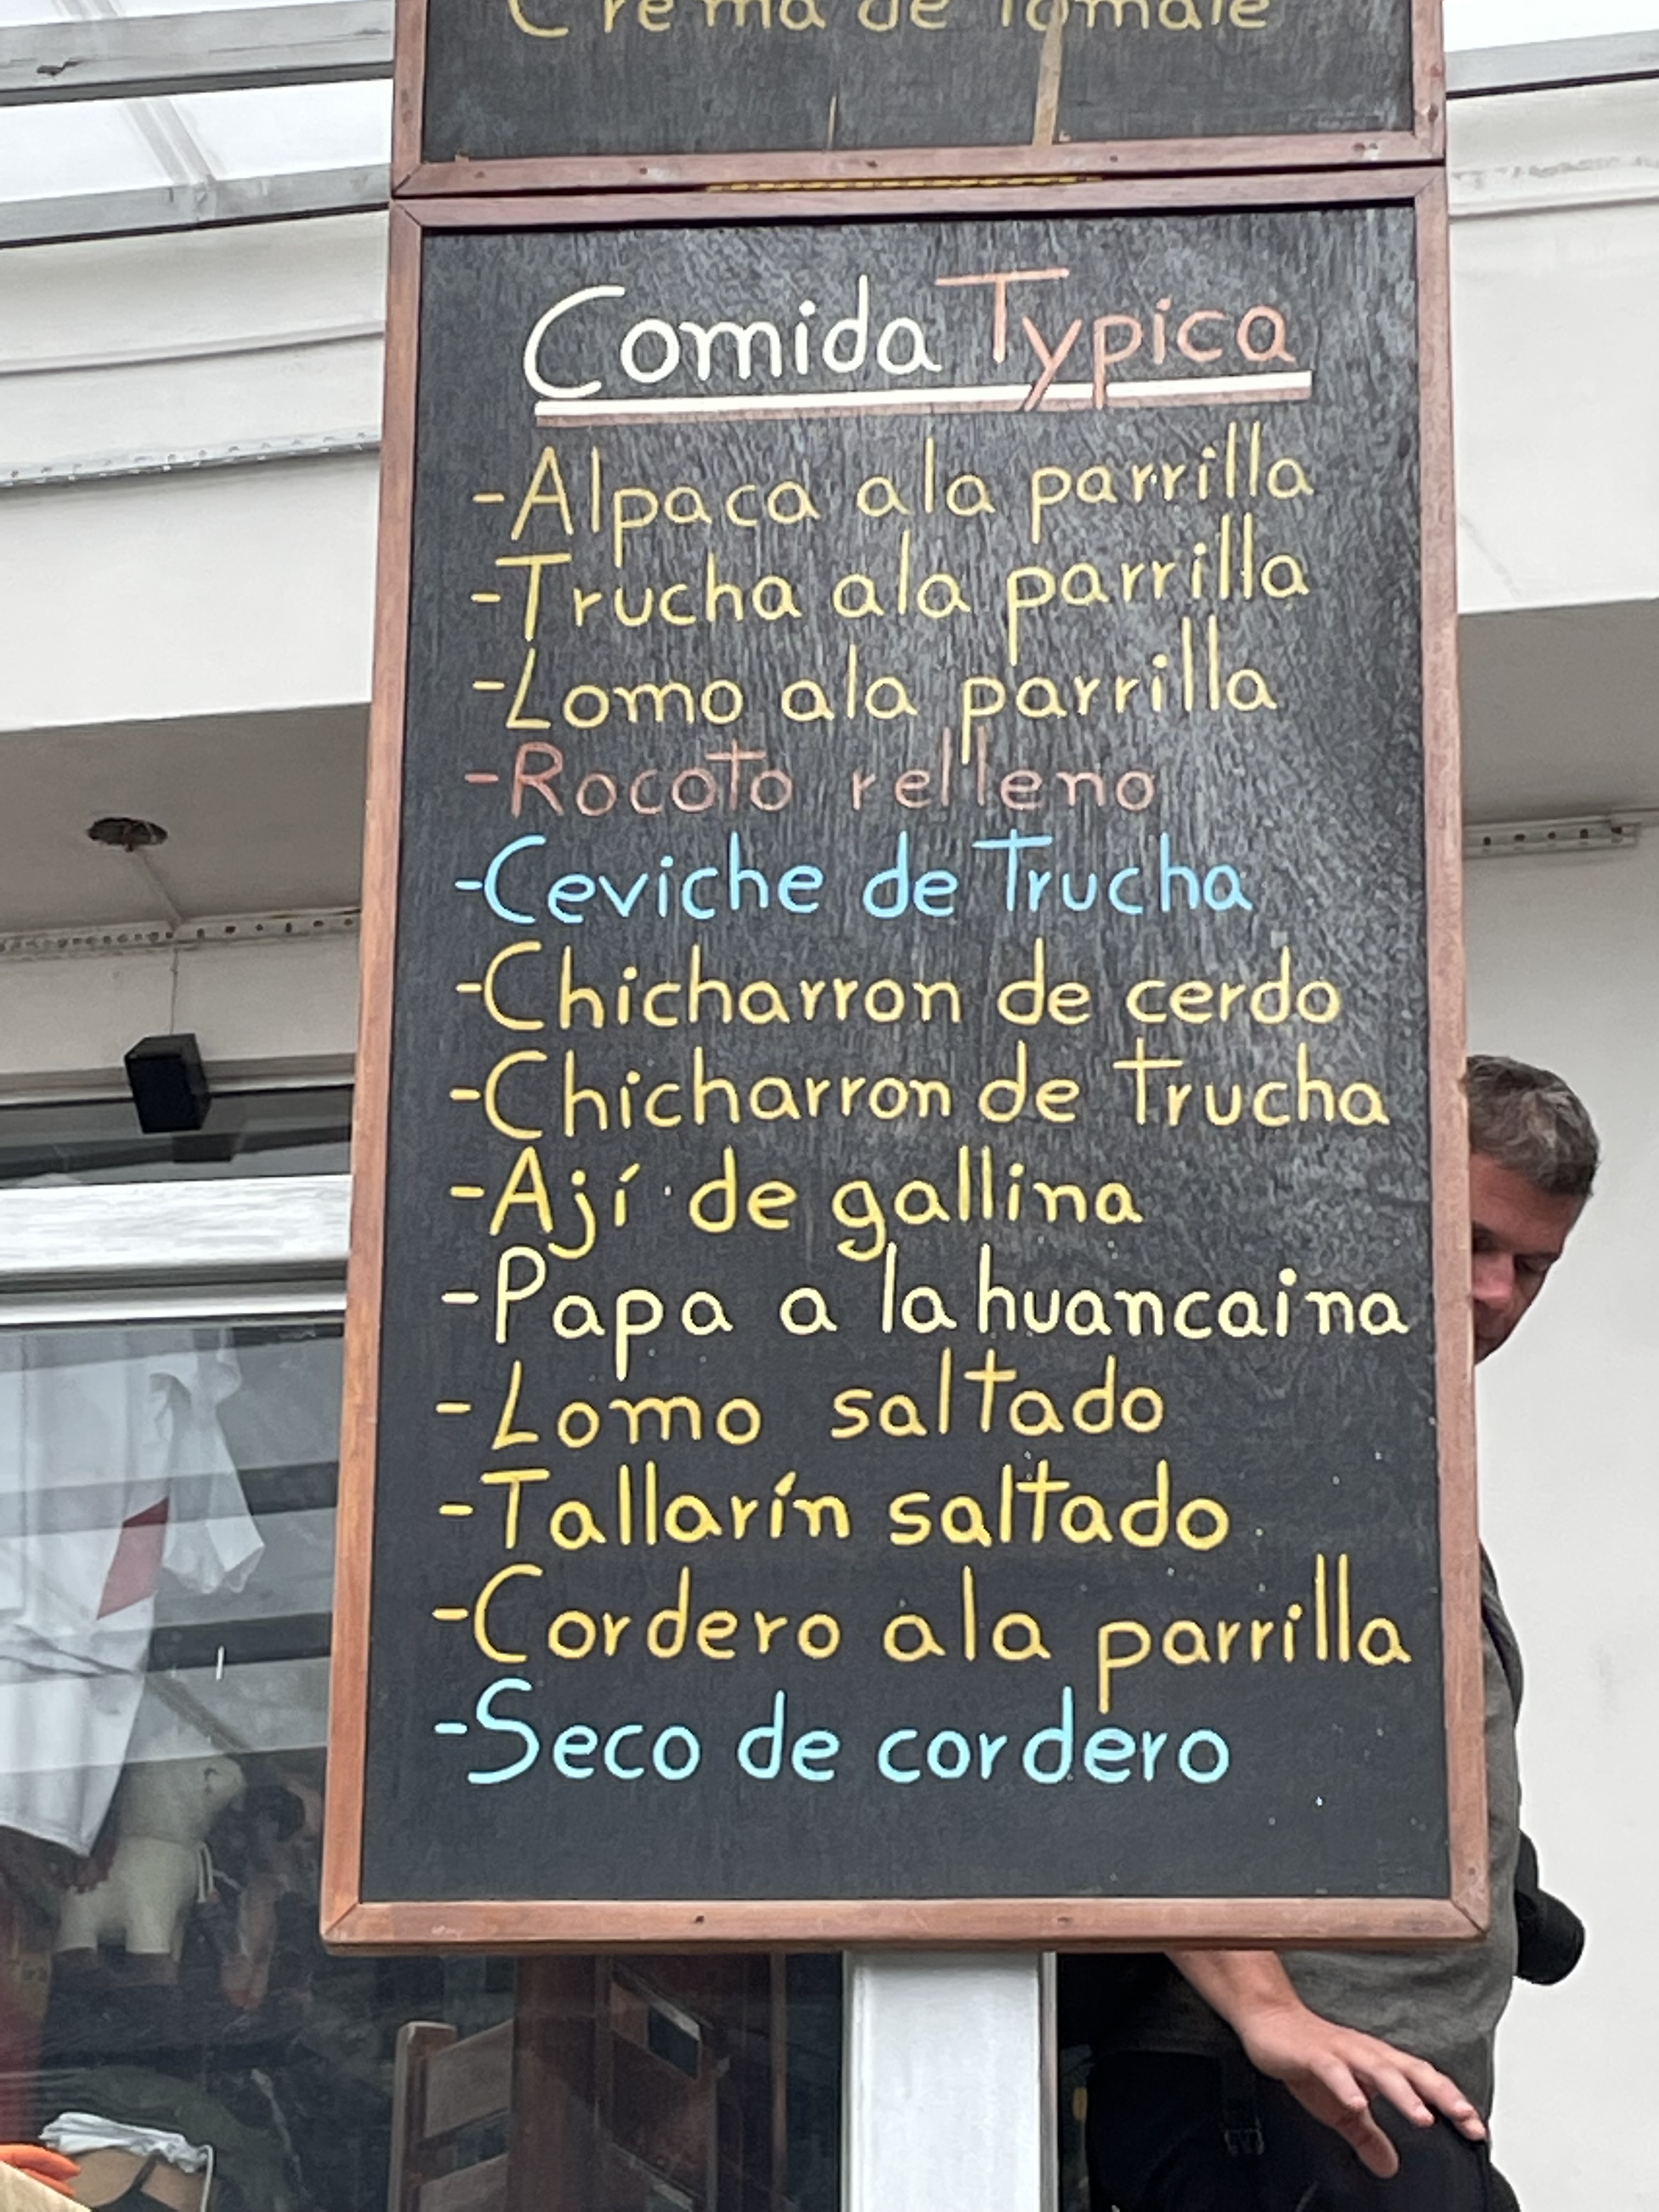 Crema de Tomate
Comida Typica
-Alpaca ala parrilla
-Trucha ala parrilla
-Lomo ala parrilla
-Rocoto relleno
-Ceviche de Trucha
-Chicharron de cerdo
-Chicharron de trucha
-Ají de gallina
-Papa a la huancaina
-Lomo saltado
-Tallarín saltado
-Cordero ala parrilla
-Seco de cordero